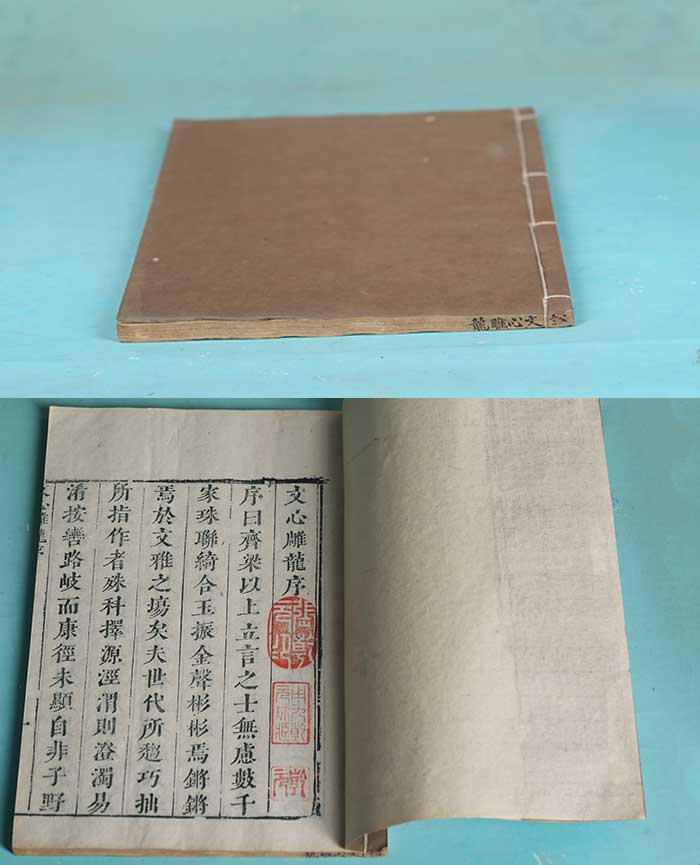 全 文心雕龍
文心雕龍序
序曰齊梁以上立言之士無慮數千
家珠聯綺合玉振金聲彬彬焉鏘鏘
焉於文雅之塲矣夫世代所趨巧抽
所指作者殊科擇源涇渭則澄濁易
淆按轡路岐而康徑未顯自非子野
心雕龍
一